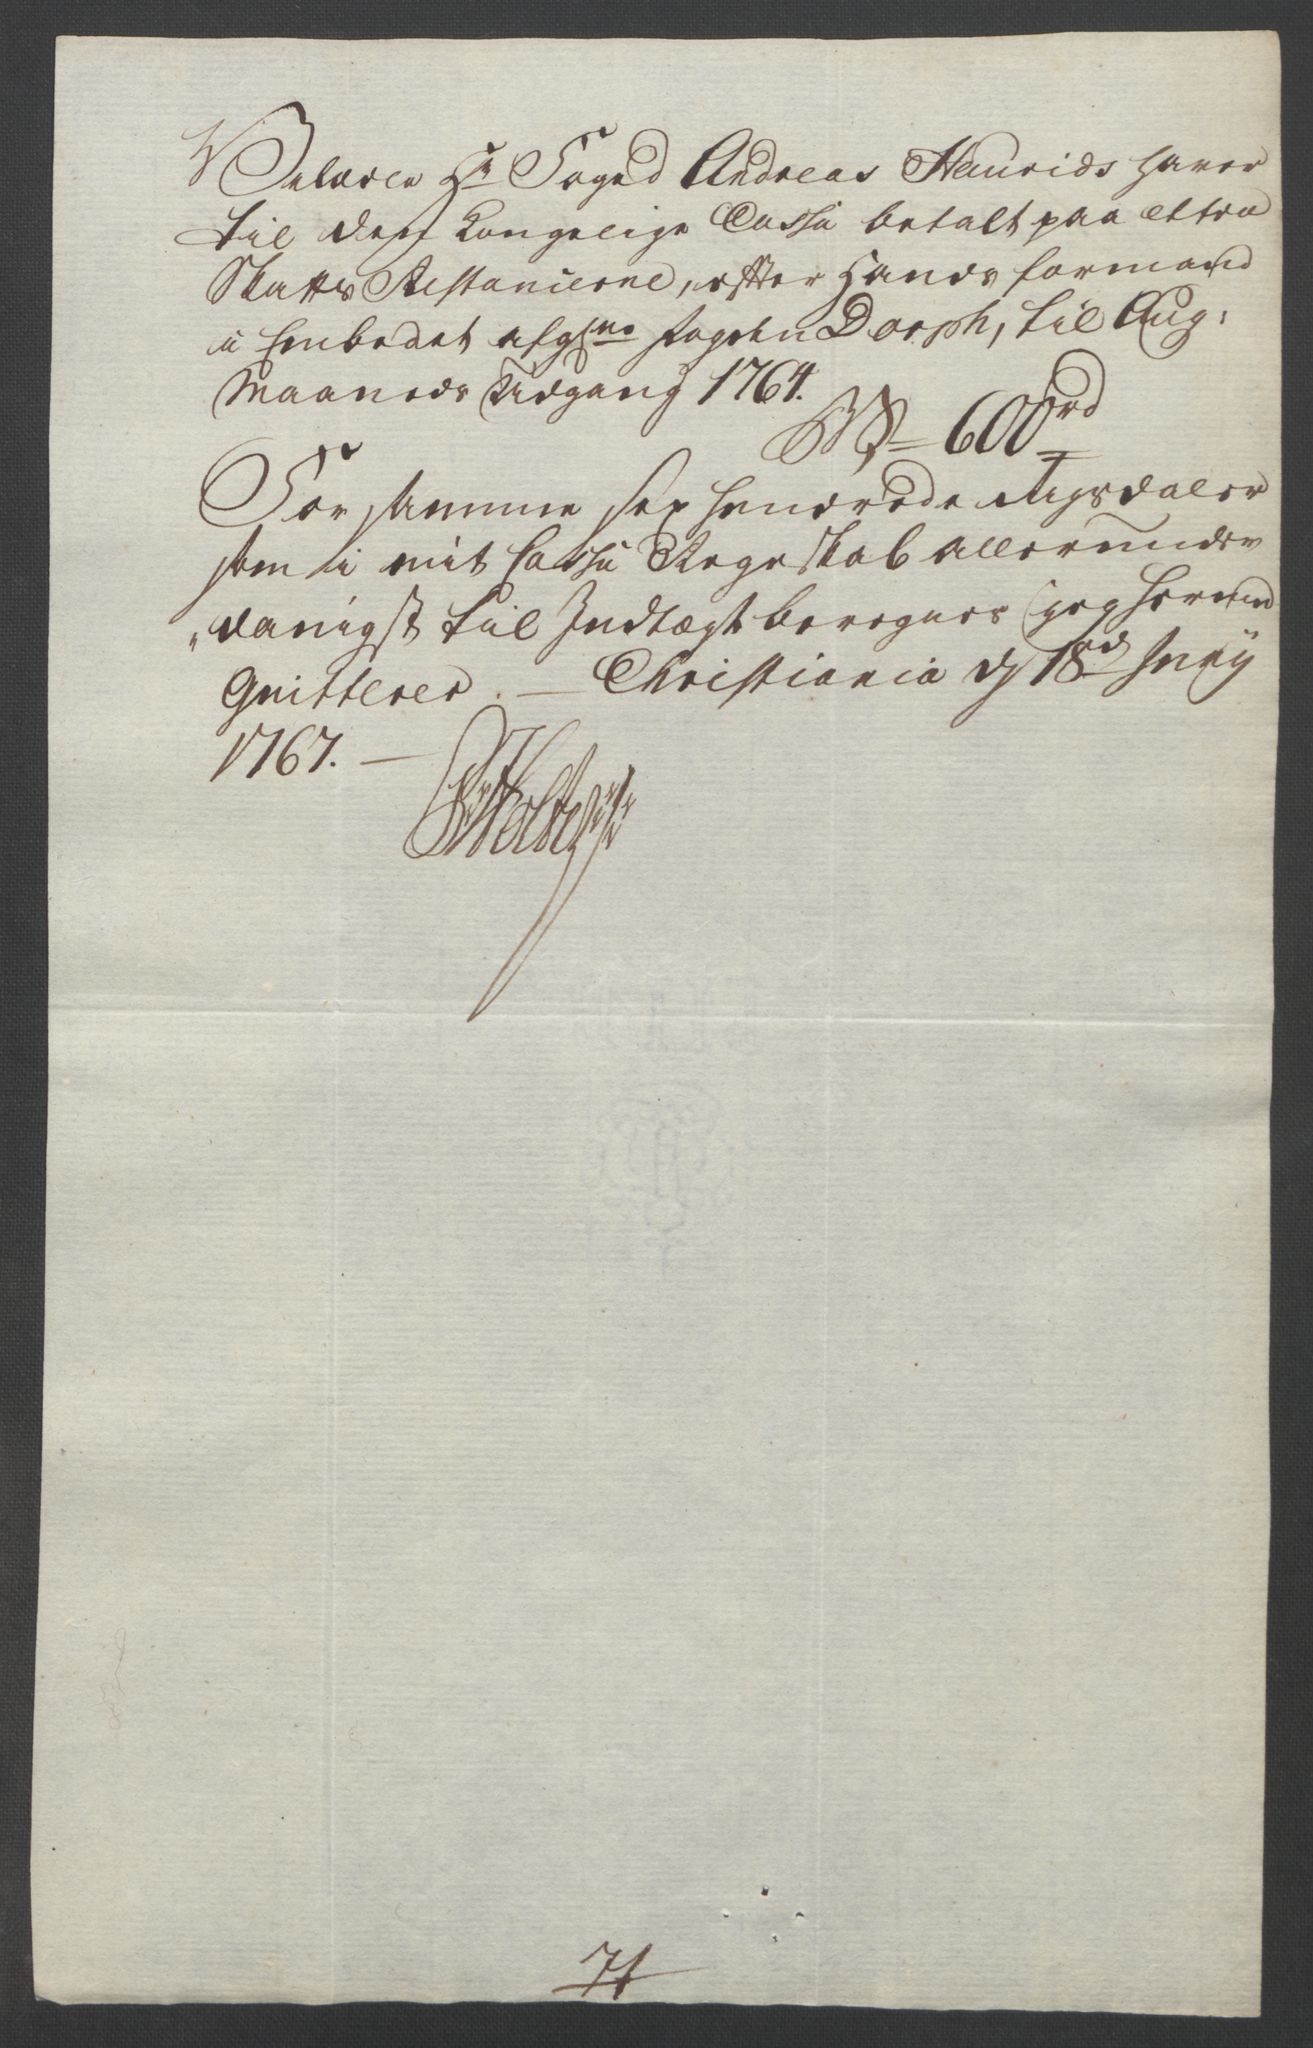 Velædle Hr Foged Andreas Henrichs haver
til den Kongelige Cassa betalt paa Extra
Skatts Restancierne, efter Hands formand
i Embedet afgl. Fogden Dorph, til Aug:
Maaneds Udgang 1764.
600 rd
For samme sex hundrede Rigsdaler
som i mit Cassa Regnskab allerunder
danigst til Indtægt beregnes jeg herved
Qvitterer. — Christiania d 18de Junij
1767. —
71